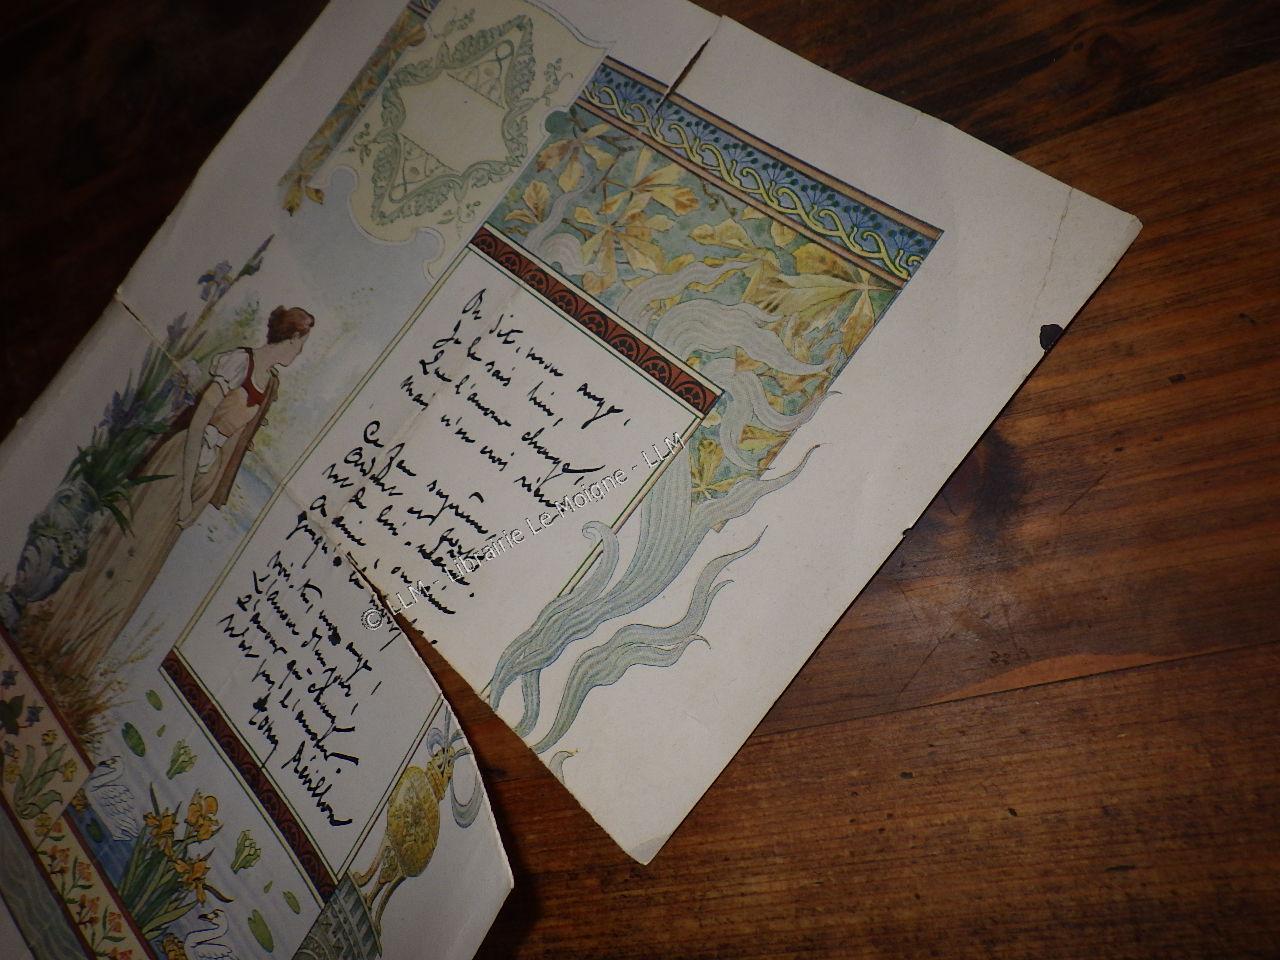 On dit, mon ange,
Je le sais bien,
Que l'amour change,
Mais n'en crois rien
Ce feu suprême,
est
de lui-même
aime, on aime
jusqu'
Vois-tu, mon ange
L'amour d'un jour,
L'amour qui change
N'est pas l'amour.
Tony Révillon
© LLM - Librairie Le Moigne - LLM